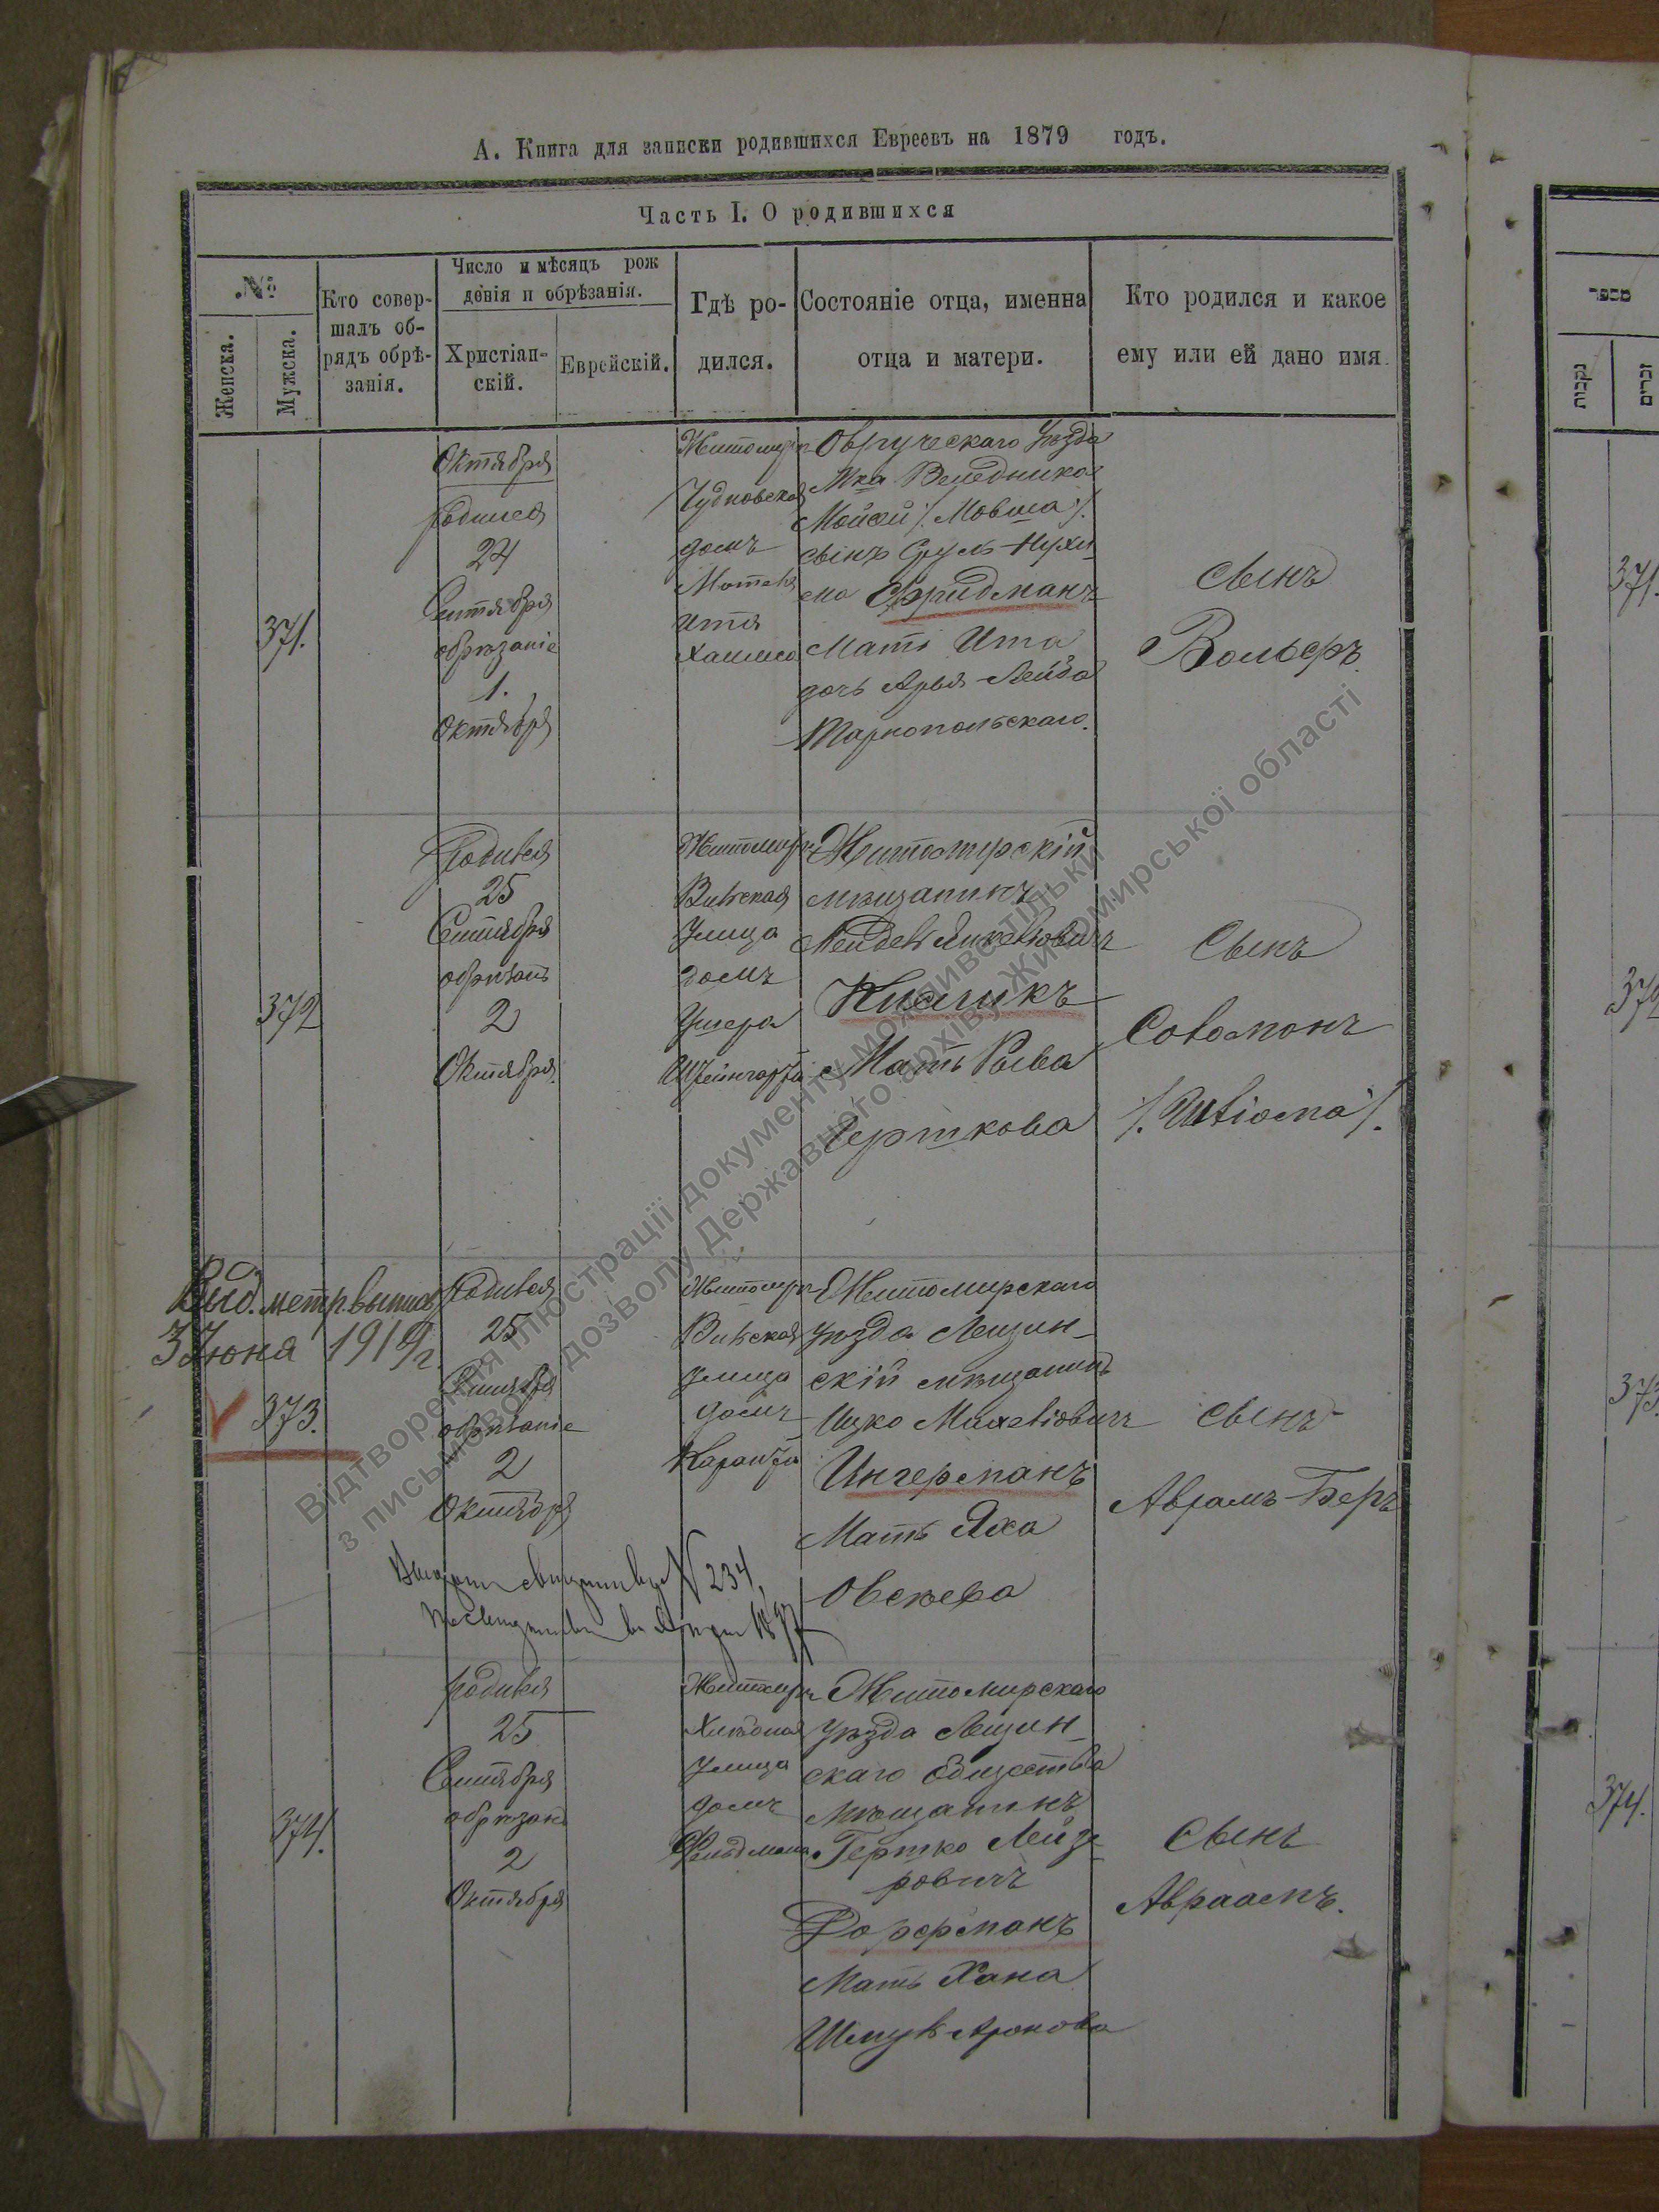 А. Книга для записки родившихся Евреевъ на 1879 годъ.
Часть I. О родившихся
№
Женска.
Мужска.
Кто совер-
шалъ об-
рядъ обрѣ-
занія.
Число и мѣсяцъ рож
денія и обрѣзанія.
Христіан-
скій.
Еврейскій.
Гдѣ ро-
дился.
Состояніе отца, именна
отца и матери.
Кто родился и какое
ему или ей дано имя.
371.
Октября
родился
24
Сентября
обрѣзаніе
1.
Октября
Житомиръ
Чудновская
домъ
Хаима
Овручскаго Уѣзда
Мка Веледника
Мойсей /. Мовша /.
сынъ Сруль-Нухи
ма Фридманъ
Мать Ита
дочь Арья-Лейба
Тарнопольскаго.
сынъ
Вольфъ
372
Родился
25
Сентября
2
Октября.
Житомиръ
Вильская
Улица
домъ
Ушера
Житомирскій
мѣщанинъ
Книжникъ
Мать Рыва
Герткова
Сынъ
Соломонъ
/. Шліома /.
Выд. метр. выпись
3 Июня 1919 г.
373.
Родился
25
Сентября
обрѣзаніе
2
Октября
Житомиръ
Вильская
улица
домъ
Житомирскаго
Уѣзда Лещин-
скій мѣщанинъ
Ицко Михелiовичъ
Ингерманъ
Мать Яха
Овсѣева
сынъ
Аврамъ-Беръ
N 234
374.
родился
25
Сентября
2
Октября
Житомиръ
Хлѣбная
Улица
домъ
Фельдмана
Житомирскаго
Уѣзда Лещин-
скаго Общества
Мѣщанинъ
Гершко Лейзе
ровичъ
Дорфманъ
Мать Хана
Шмуль-Аронова
Сынъ
Авраамъ.
מספר
נקבות
זכרים
371.
372
373
374.
Відтворення ілюстрації документу можливо тільки
з письмового дозволу Державного архіву Житомирської області